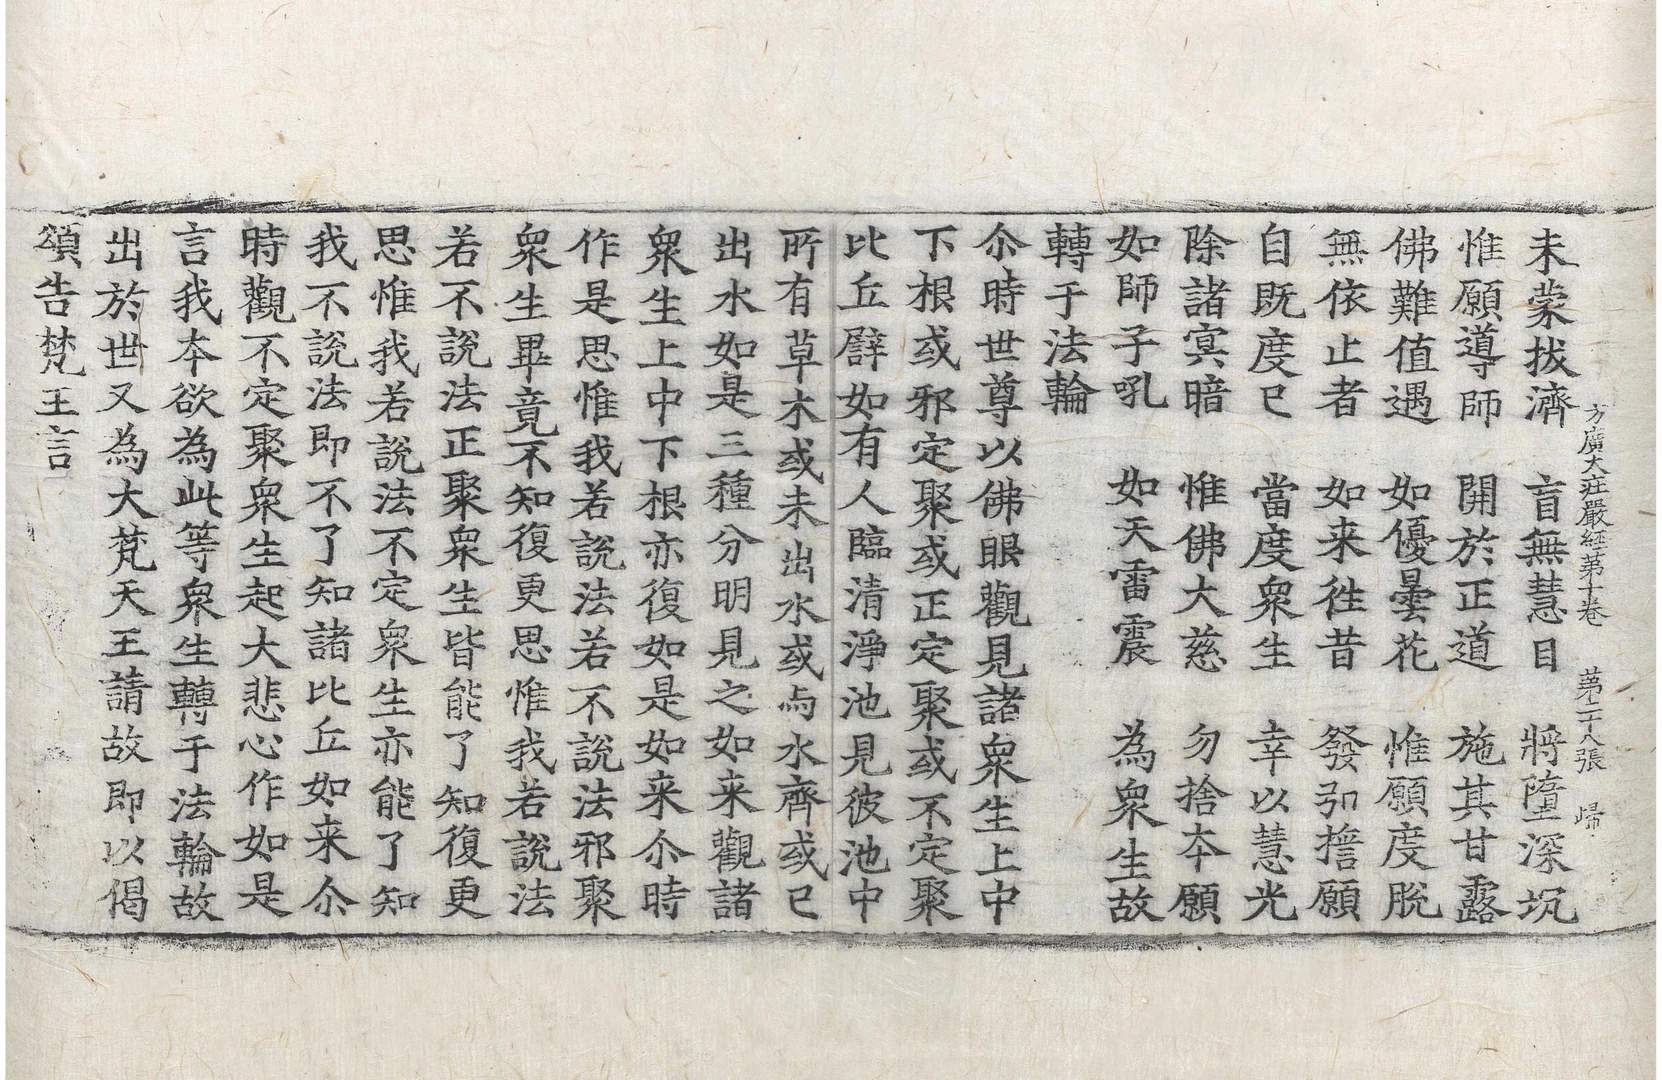 方廣大莊嚴經第十卷 第二十八張 歸
未蒙拔濟 盲無慧目 將墮深坑
惟願導師 開於正道 施其甘露
佛難值遇 如優曇花 惟願度脫
無依止者 如来徃昔 發弘擔願
自既度已 當度衆生 幸以慧光
除諸冥暗 惟佛大慈 勿捨本願
如師子吼 如天雷震 為衆生故
轉于法輪
尒時世尊以佛眼觀見諸衆生上中
下根或邪定聚或正定聚或不定聚
比丘譬如有人臨清淨池見彼池中
所有草木或未出水或与水齊或已
出水如是三種分明見之如来觀諸
衆生上中下根亦復如是如来尒時
作是思惟我若說法若不說法邪聚
衆生畢竟不知復更思惟我若說法
若不說法正聚衆生皆能了知復更
思惟我若說法不定衆生亦能了知
我不說法即不了知諸比丘如来尒
時觀不定聚衆生起大悲心作如是
言我本欲為此等衆生轉于法輪故
出於世又為大梵天王請故即以偈
頌告梵王言